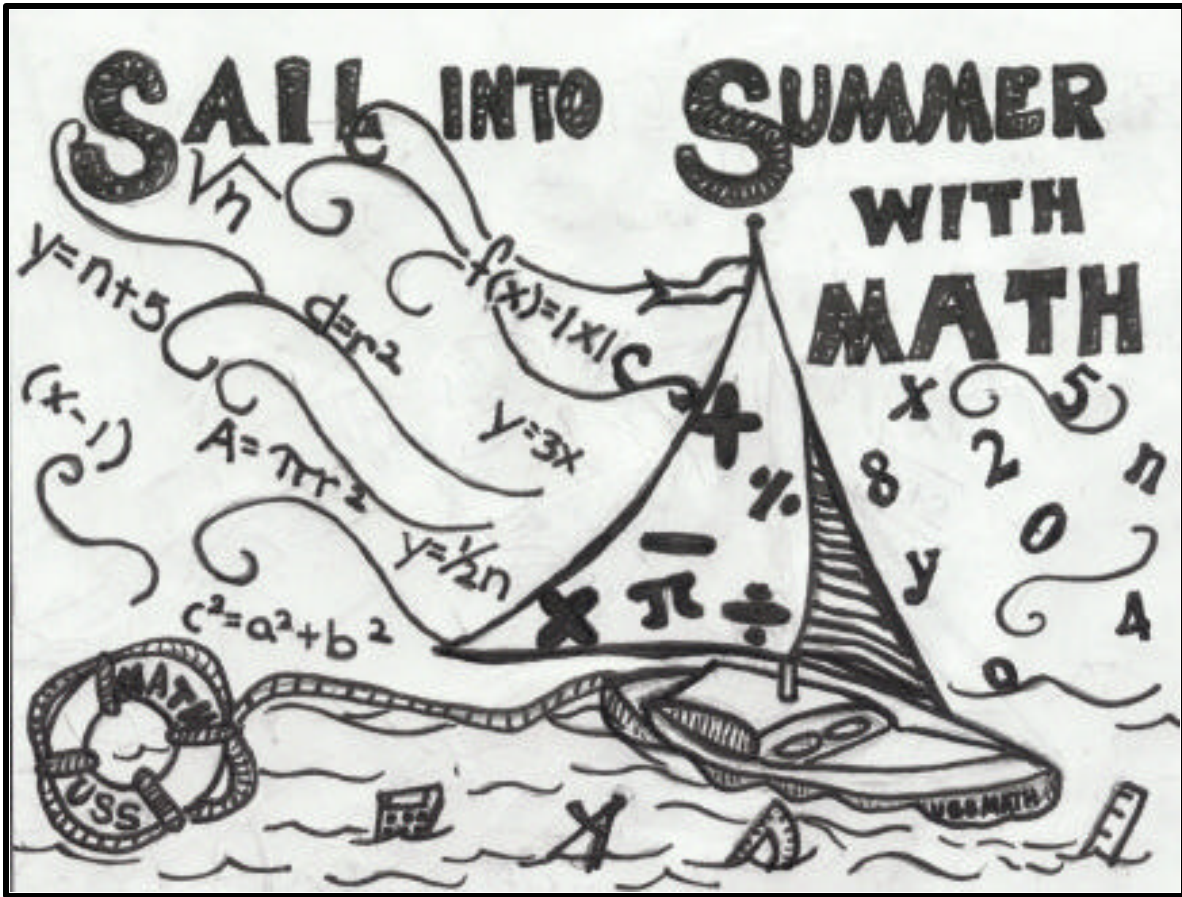 SAIL INTO SUMMER
WITH
MATH
√n
y=n+5
d=r²
f(x)=|x|
(x-1)
y=3x
A=πr²
y=½n
c²=a²+b²
+
%
−
× π ÷
x 5
8 2 n
0
y
4
0
MATH
USS
USS MATH